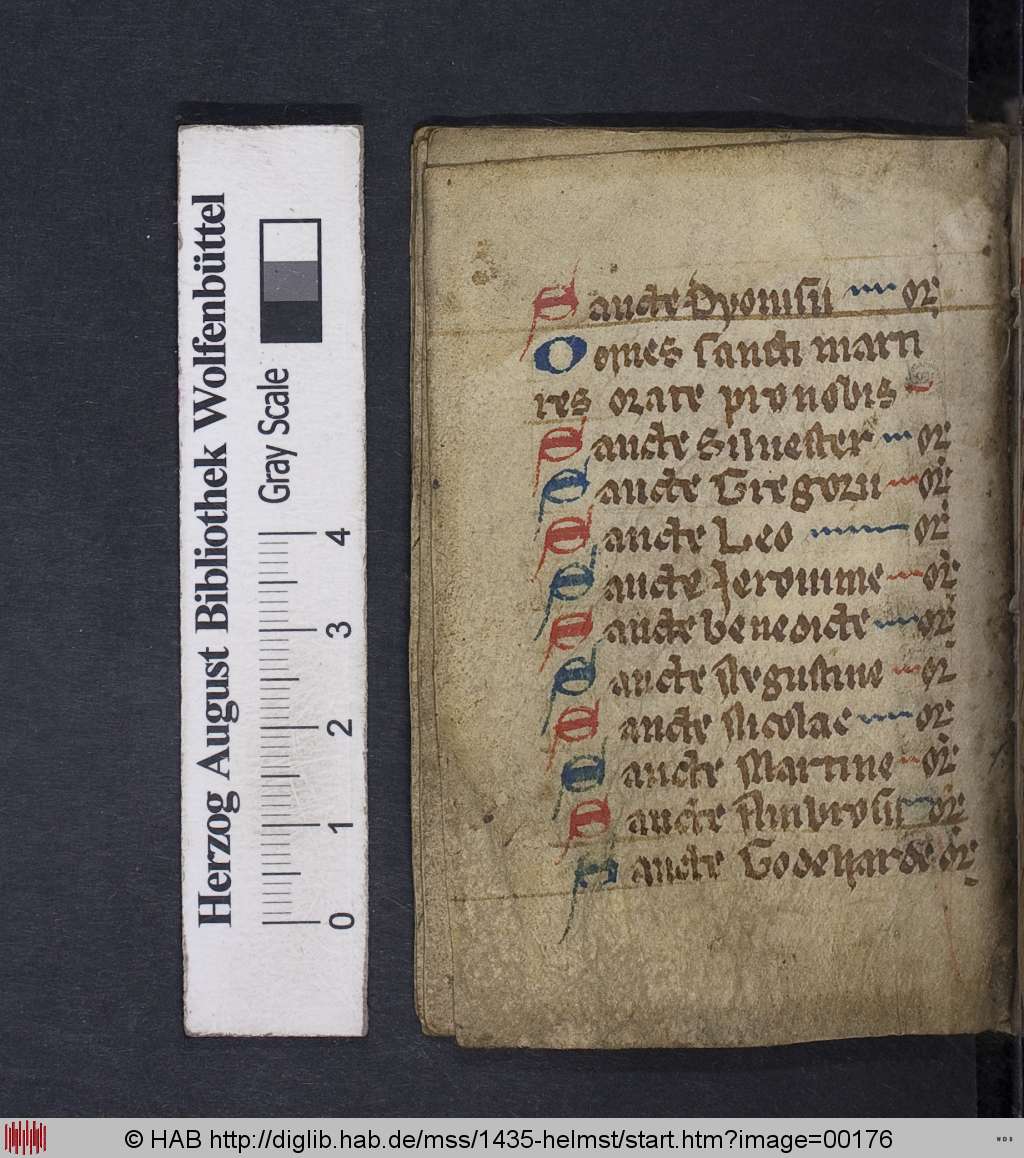 Herzog August Bibliothek Wolfenbüttel
Gray Scale
0 1 2 3 4
Sancte Dyonisii or
Oomes sancti marti
res orate pro nobis
Sancte Siluester or
Sancte Gregorii or
Sancte Leo or
Sancte Jeronime or
Sancte benedicte or
Sancte Avgustine or
Sancte Nicolae or
Sancte Martine or
Sancte Ambrosii or
Sancte Godeharde or
© HAB http://diglib.hab.de/mss/1435-helmst/start.htm?image=00176